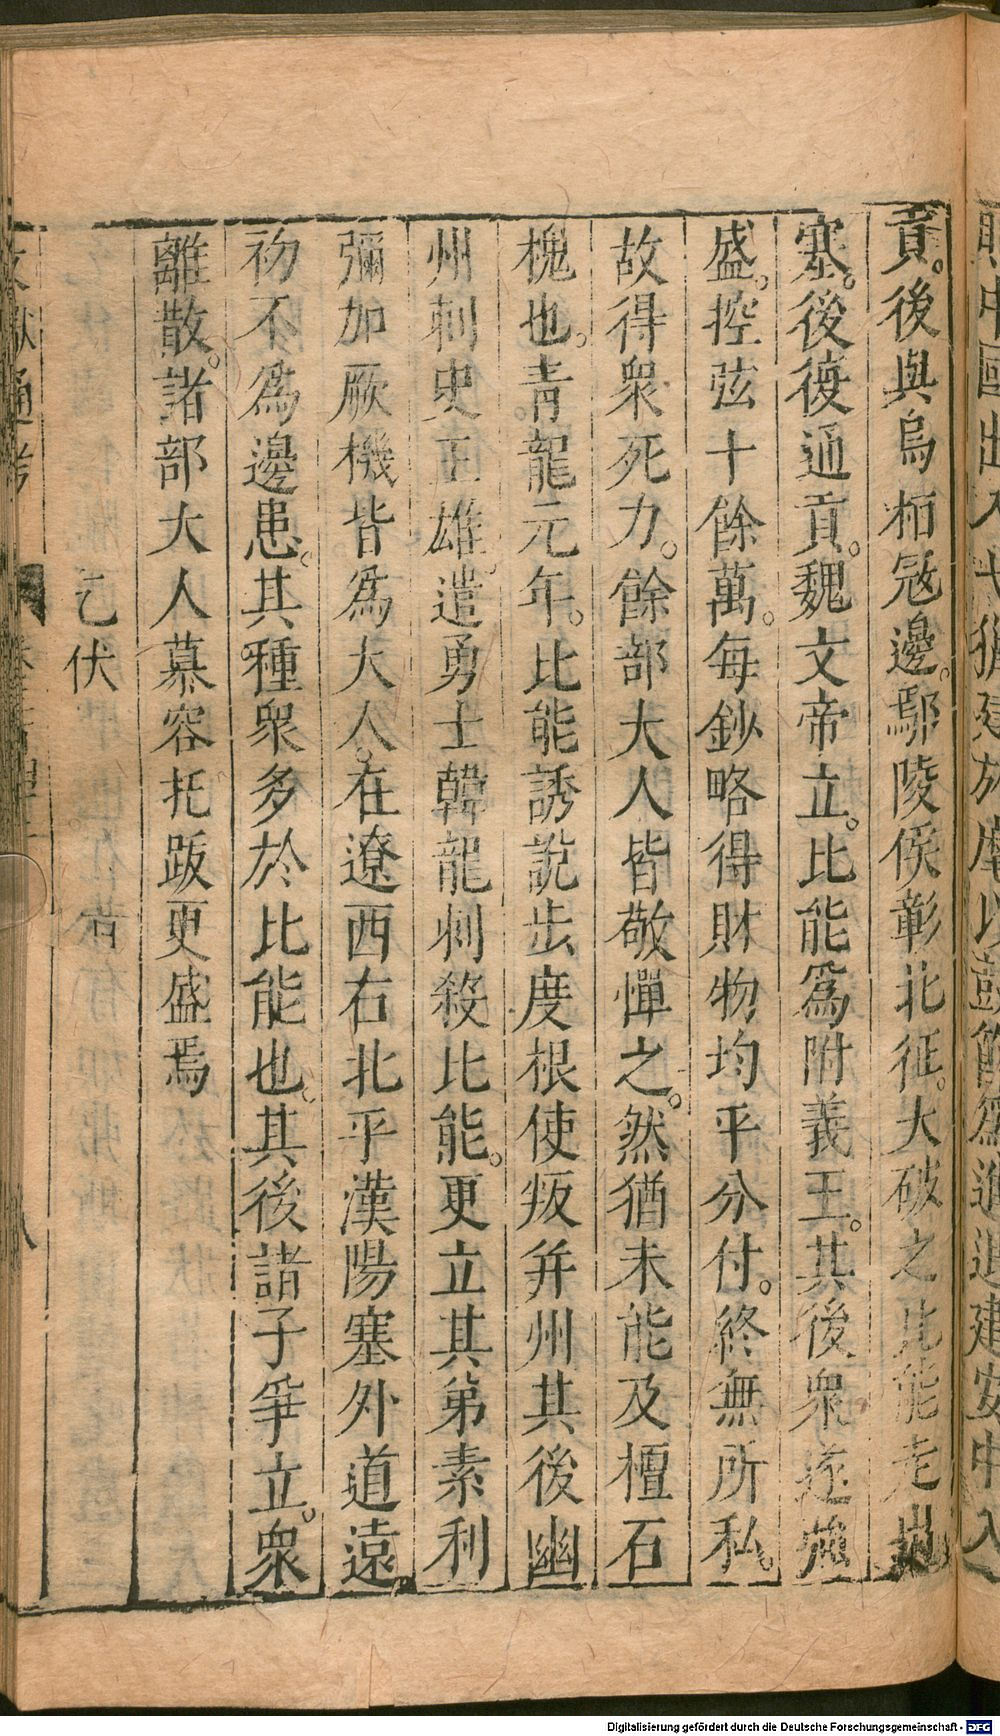 貢。後與烏桓寇邊。鄢陵侯彰北征。大破之比能走出
塞。後復通貢。魏文帝立。比能爲附義王。其後衆遂强
盛。控弦十餘萬。每鈔略得財物均平分付。終無所私。
故得衆死力。餘部大人皆敬憚之。然猶未能及檀石
槐也。青龍元年。比能誘說步度根使叛并州其後幽
州刺史王雄。遣勇士韓龍刺殺比能。更立其弟素利
彌加厥機皆爲大人。在遼西右北平漢陽塞外道遠。
初不爲邊患。其種衆多於比能也。其後諸子爭立。衆
離散。諸部大人慕容托跋更盛焉
乞伏
文獻通考
Digitalisierung gefördert durch die Deutsche Forschungsgemeinschaft - DFG